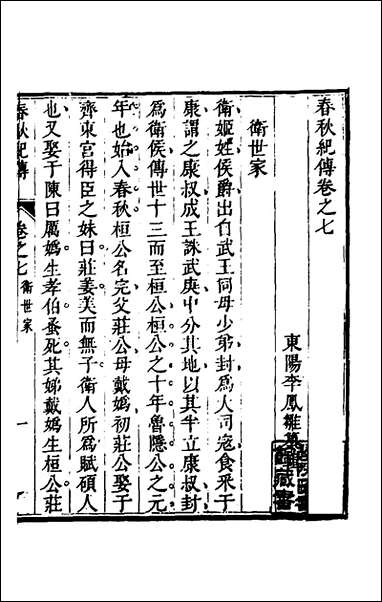 春秋紀傳卷之七
東陽李鳳雛
衛世家
衛姬姓侯爵出自武王同母少弟封爲大司寇食采于
康謂之康叔成王誅武庚中分其地以其半立康叔封
爲衛侯傳世十三而至桓公桓公之十年魯隱公之元
年也始入春秋桓公名完父莊公母戴嬀初莊公娶于
齊東宮得臣之妹曰莊姜美而無子衛人所爲賦碩人
也又娶于陳曰厲嬀生孝伯蚤死其娣戴嬀生桓公莊
春秋紀傳
卷之七
衛世家
一